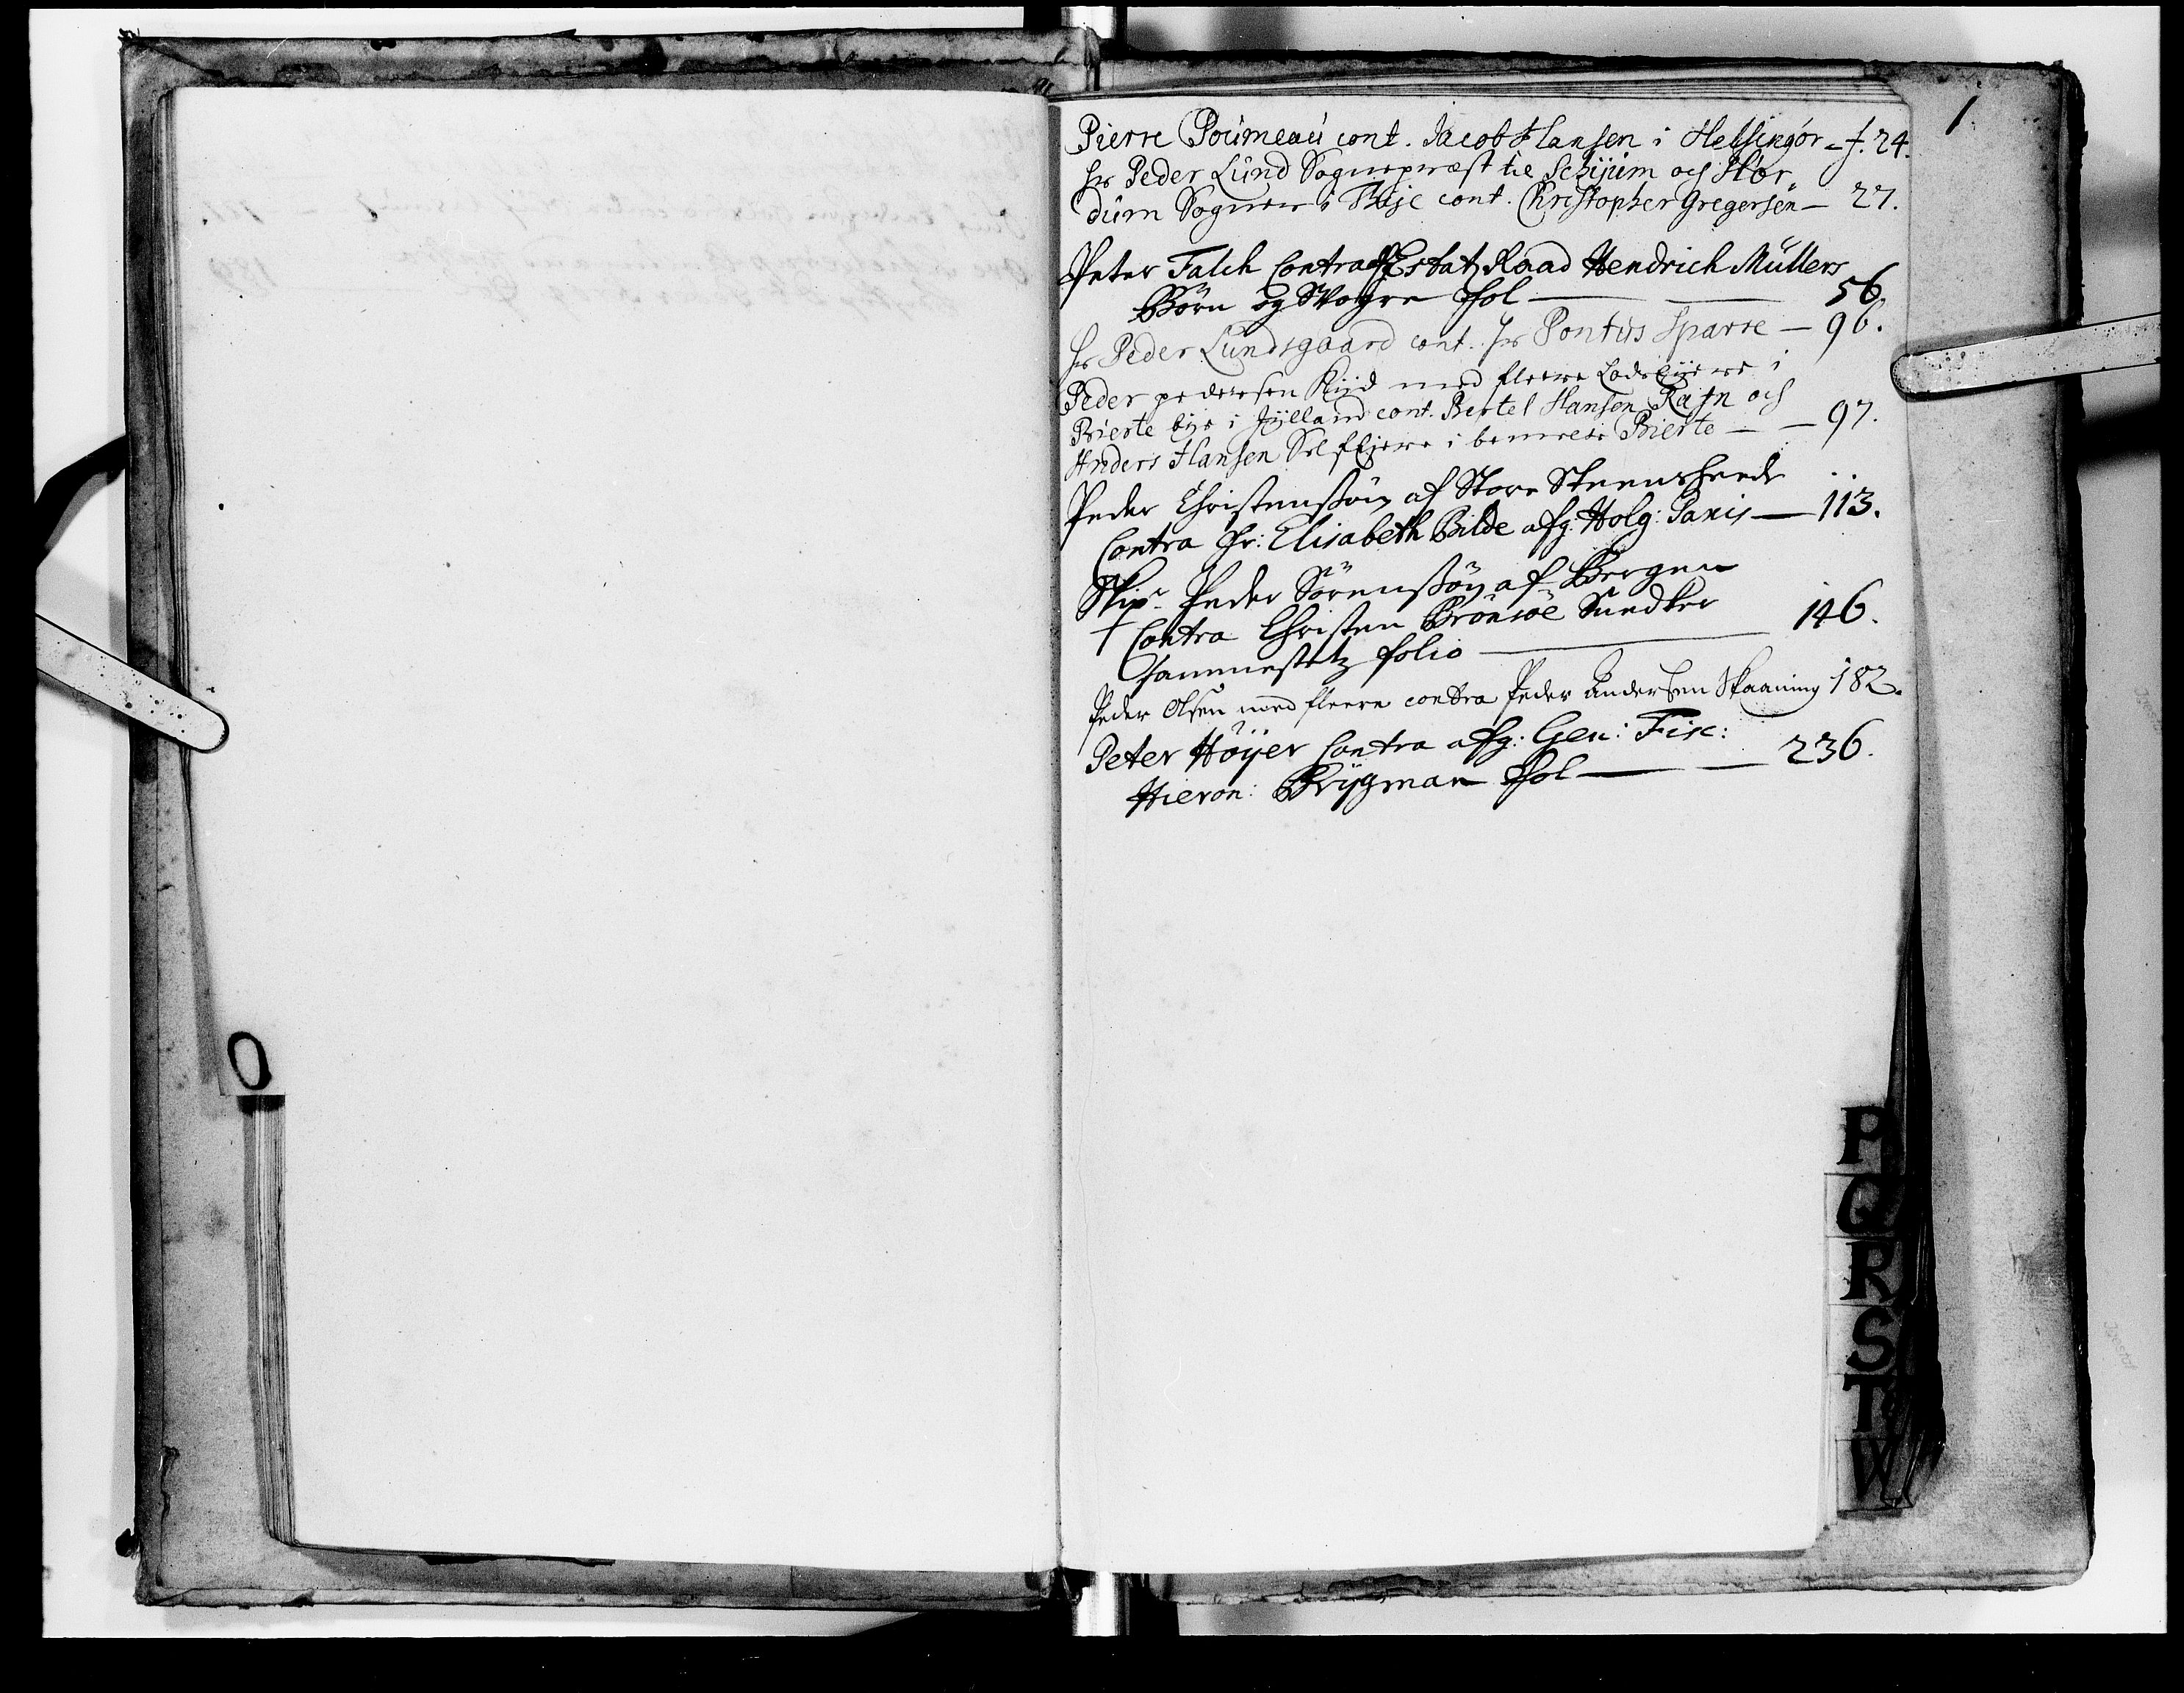 1
Pierre Poumeau cont. Jacob Hansen i Helsingør - f. 24.
Hr Peder Lund Sognepræst til Schjum och Hør
dum Sogner i Thye cont. Christopher Gregersen - 27.
Peter Falck Contra Estatz Raad Hendrich Müllers
Børn og Svogre Fol — — 56.
Hr Peder Lundsgaard cont. Hr Pontus Sparre - 96.
Peder pedersen Kiid med fleere Lodseyere i
Bierte bye i Jylland cont. Bertel Hansen Rafn och
Anders Hansen Selfeyere i bemelte Bierte - - 97.
Peder Christensøn af Store Steensheede
Contra Fr: Elisabeth Bilde afg: Holg: Paxis — 113.
Skipr Peder Sørensøn af Bergen
Contra Christen Brønsøe Snedker
sammestetz folio — 146.
Peder Olsen med fleere contra Peder Andersen Skaaning 182.
Peter Høyer Contra afg: Gen: Fisc:
Hieron: Brygman Fol — — 236.
O
P
Q
R
S
T
W